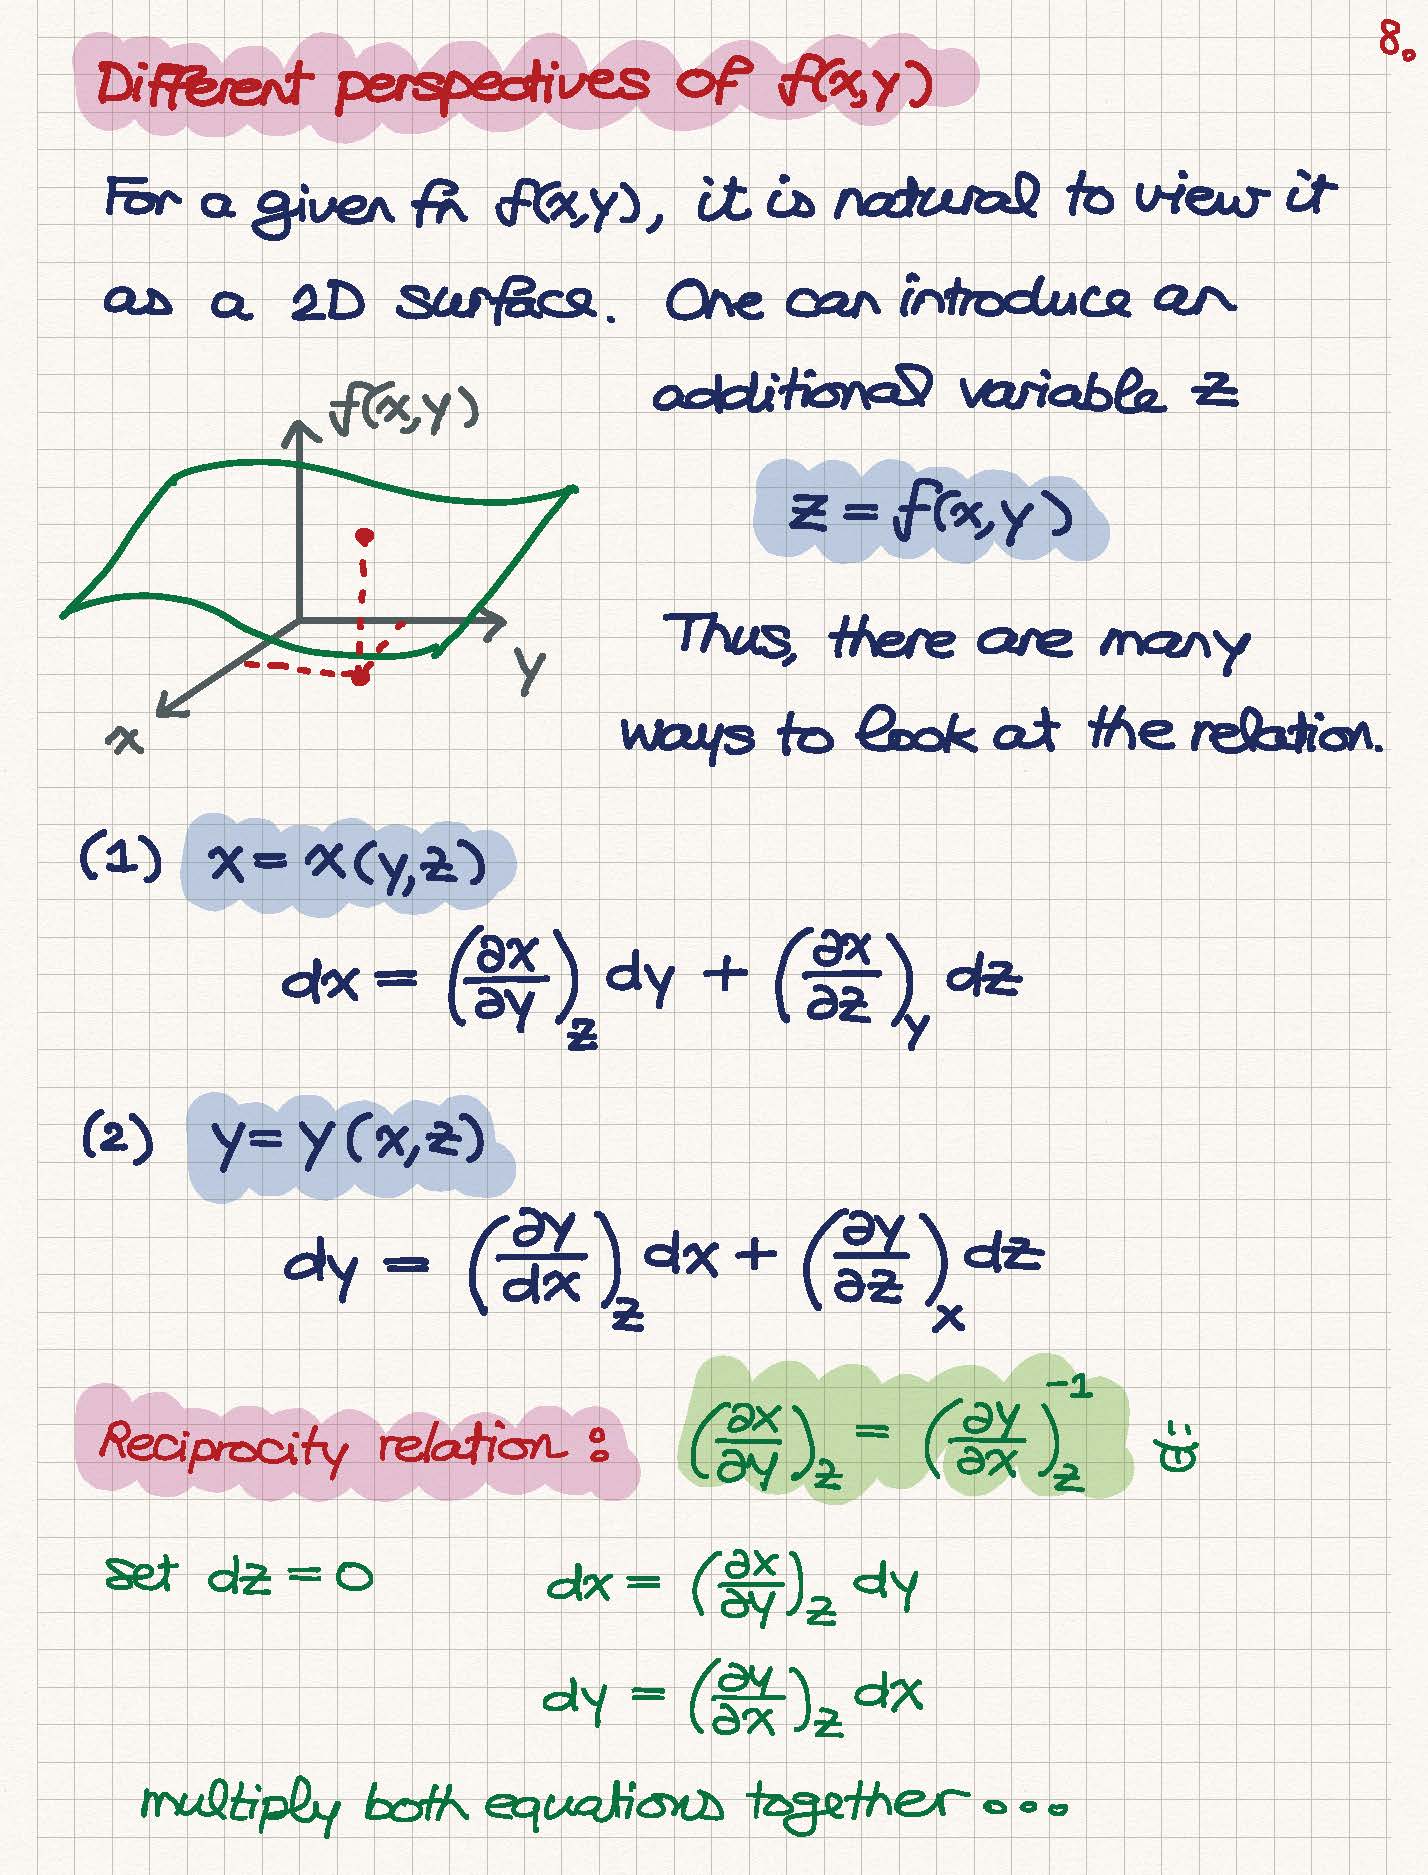 8.
Different perspectives of f(x,y)
For a given fn f(x,y), it is natural to view it
as a 2D surface. One can introduce an
additional variable z
f(x,y)
z = f(x,y)
y
x
Thus, there are many
ways to look at the relation.
(1) x = x(y,z)
dx = (∂x/∂y)_z dy + (∂x/∂z)_y dz
(2) y = y(x,z)
dy = (∂y/dx)_z dx + (∂y/∂z)_x dz
Reciprocity relation : (∂x/∂y)_z = (∂y/∂x)_z^-1
set dz = 0 dx = (∂x/∂y)_z dy
dy = (∂y/∂x)_z dx
multiply both equations together ....